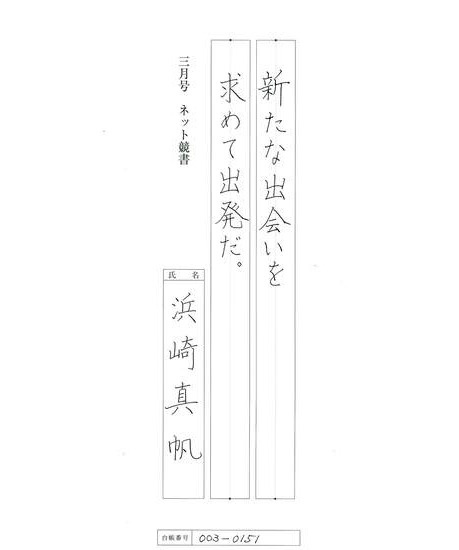 新たな出会いを
求めて出発だ。
三月号 ネット競書
氏名
浜崎真帆
台帳番号 003-0151